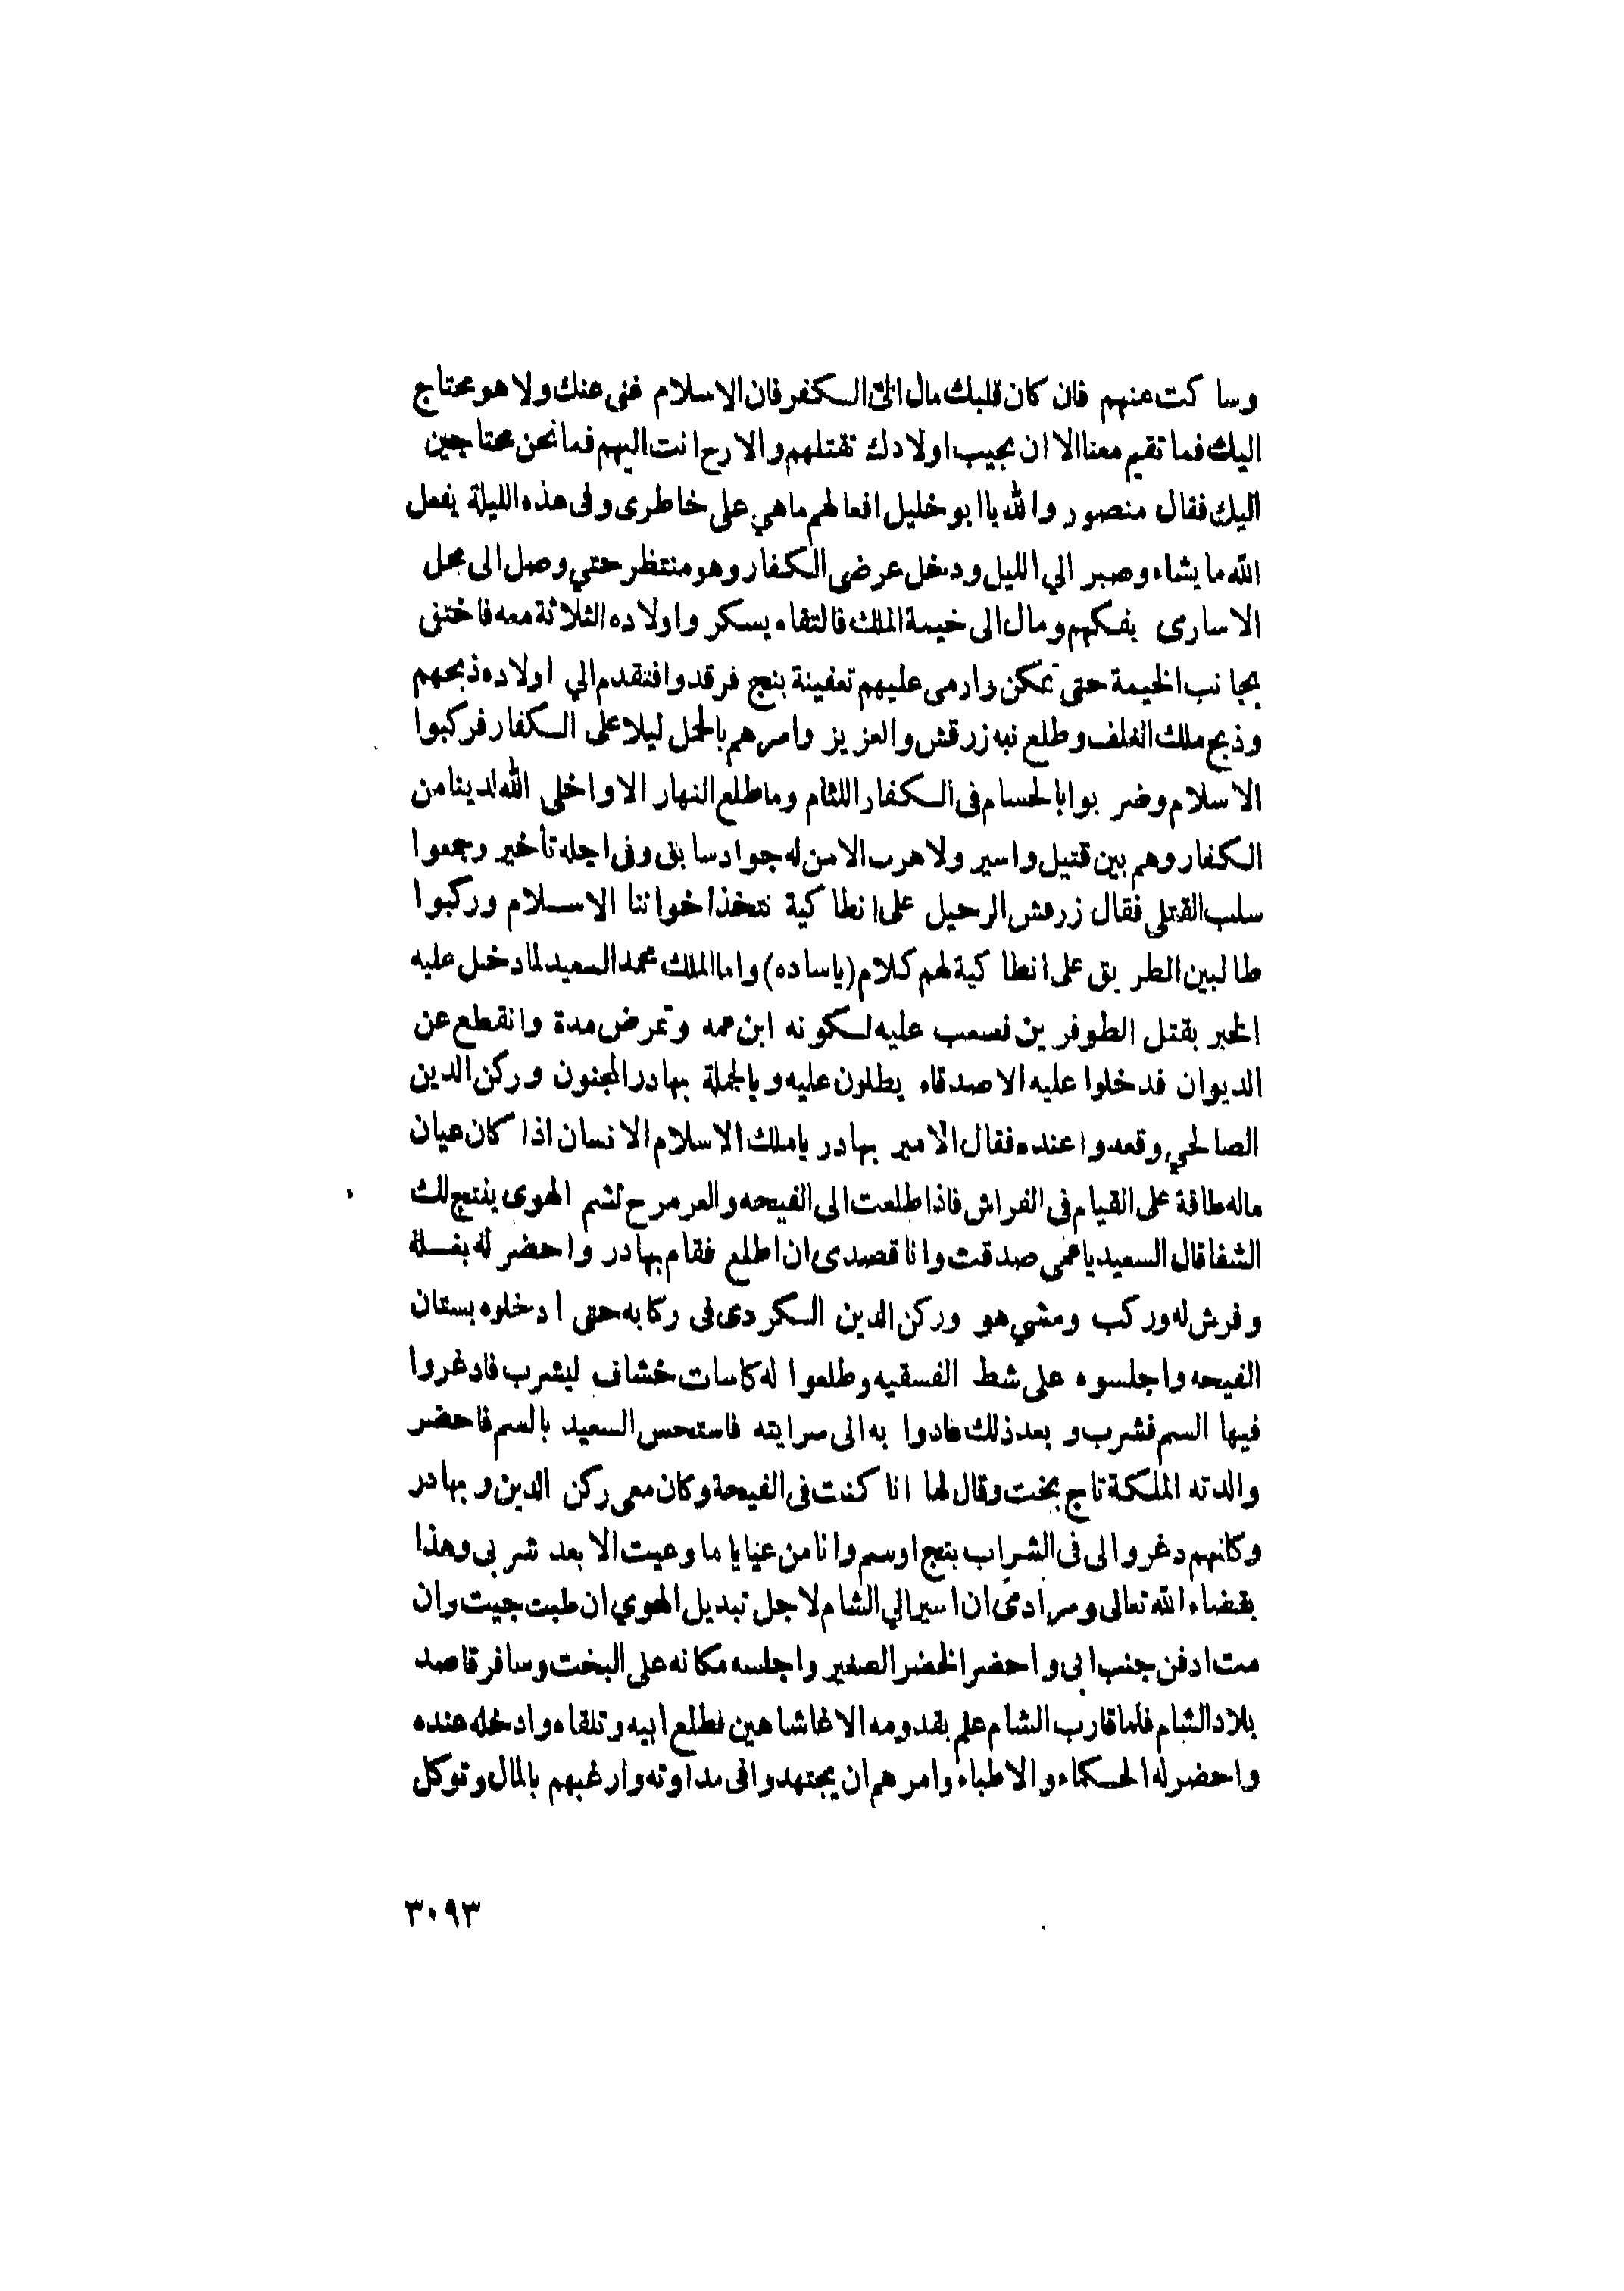 وساكت عنهم فان كان قلبك مال الى الكفر فان الاسلام غنى عنك ولا هو محتاج
اليك فما تقيم معنا الا ان تجيب اولادك تقتلهم والا رح انت اليهم فما نحن محتاجين
اليك فقال منصور والله يا ابو خليل افعالهم ما هي على خاطرى وفى هذه الليلة يفعل
الله ما يشاء وصبر الي الليل ودخل عرضى الكفار وهو منتظر حتي وصل الى محل
الاسارى يفكهم ومال الى خيمة الملك فالتقاه يسكر واولاده الثلاثة معه فاختفى
بجانب الخيمة حتى تمكن وارمى عليهم تعفينة بنج فرقدوا فتقدم الي اولاده ذبحهم
وذبح ملك الغلف وطلع نبه زرقش والعزيز وامرهم بالحمل ليلا على الكفار فركبوا
الاسلام وضربوا بالحسام فى الكفار اللئام وما طلع النهار الا واخلى الله لدينا من
الكفار وهم بين قتيل واسير ولا هرب الا من له جواد سابق وفى اجله تأخير وجمعوا
سلب القتلى فقال زرقش الرحيل على انطاكية نتخذ اخواننا الاسلام وركبوا
طالبين الطريق على انطاكية لهم كلام (ياساده) واما الملك محمد السعيد لما دخل عليه
الخبر بقتل الطوفرين فصعب عليه لكونه ابن عمه وتمرض مدة وانقطع عن
الديوان فدخلوا عليه الاصدقاء يطلون عليه وبالجملة بهادر المجنون وركن الدين
الصالحي وقعدوا عنده فقال الامير بهادر يا ملك الاسلام الانسان اذا كان عيان
ماله طاقة على القيام فى الفراش فاذا طلعت الى الفيحه والمرمرح تشم الهوى ينتج لك
الشفا قال السعيد يا عمى صدقت وانا قصدى ان اطلع فقام بهادر واحضر له بغلة
وفرش له وركب ومشي هو وركن الدين الكردى فى ركابه حتى ادخلوه بستان
الفيحه واجلسوه على شط الفسقيه وطلعوا له كاسات خشاف ليشرب فادغروا
فيها السم فشرب وبعد ذلك عادوا به الى سرايته فاستحس السعيد بالسم فاحضر
والدته الملكة تاج بخت وقال لها انا كنت فى الفيحة وكان معى ركن الدين وبهادر
وكانهم دغروا لى فى الشراب بنج او سم وانا من عيايا ما وعيت الا بعد شربى وهذا
بقضاء الله تعالى ومرادى ان اسير الي الشام لاجل تبديل الهوي ان طبت جيت وان
مت ادفن جنب ابى واحضر الخضر الصغير واجلسه مكانه على البخت وسافر قاصد
بلاد الشام فلما قارب الشام علم بقدومه الاغا شاهين فطلع اليه وتلقاه وادخله عنده
واحضر له الحكماء والاطباء وامرهم ان يجتهدوا فى مداوته وارغبهم بالمال وتوكل
٣٠٩٣